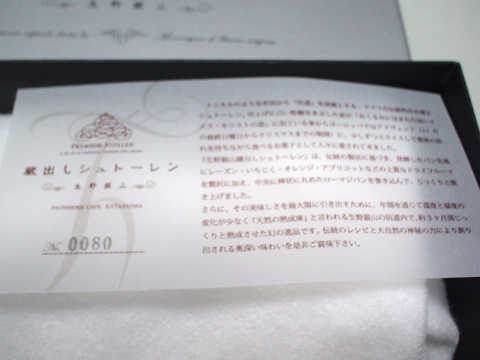 生野銀山
PREMIUM STOLLEN
蔵出しシュトーレン
生野銀山
PATISSERIE CAFE KATASHIMA
0080
トンネルのような形状から「坑道」を意味する、ドイツの伝統的なお菓子
シュトーレン。
れを待ちながら食べるお菓子として人々に愛されてきました。
「生野銀山蔵出しシュトーレン」は、伝統の製法に基づき、発酵したパン生地
にレーズン・いちじく・オレンジ・アプリコットなどの上質なドライフルーツ
を贅沢に加え、中央に棒状に丸めたローマジパンを巻き込んで、じっくりと焼
き上げました。
さらに、その美味しさを最大限に引き出すために、年間を通じて温度と湿度の
変化が少なく『天然の熟成庫』と言われる生野銀山の坑道内で、約3ヶ月間じっ
くりと熟成させた幻の逸品です。伝統のレシピと大自然の神秘の力により創り
出される奥深い味わいを是非ご賞味下さい。